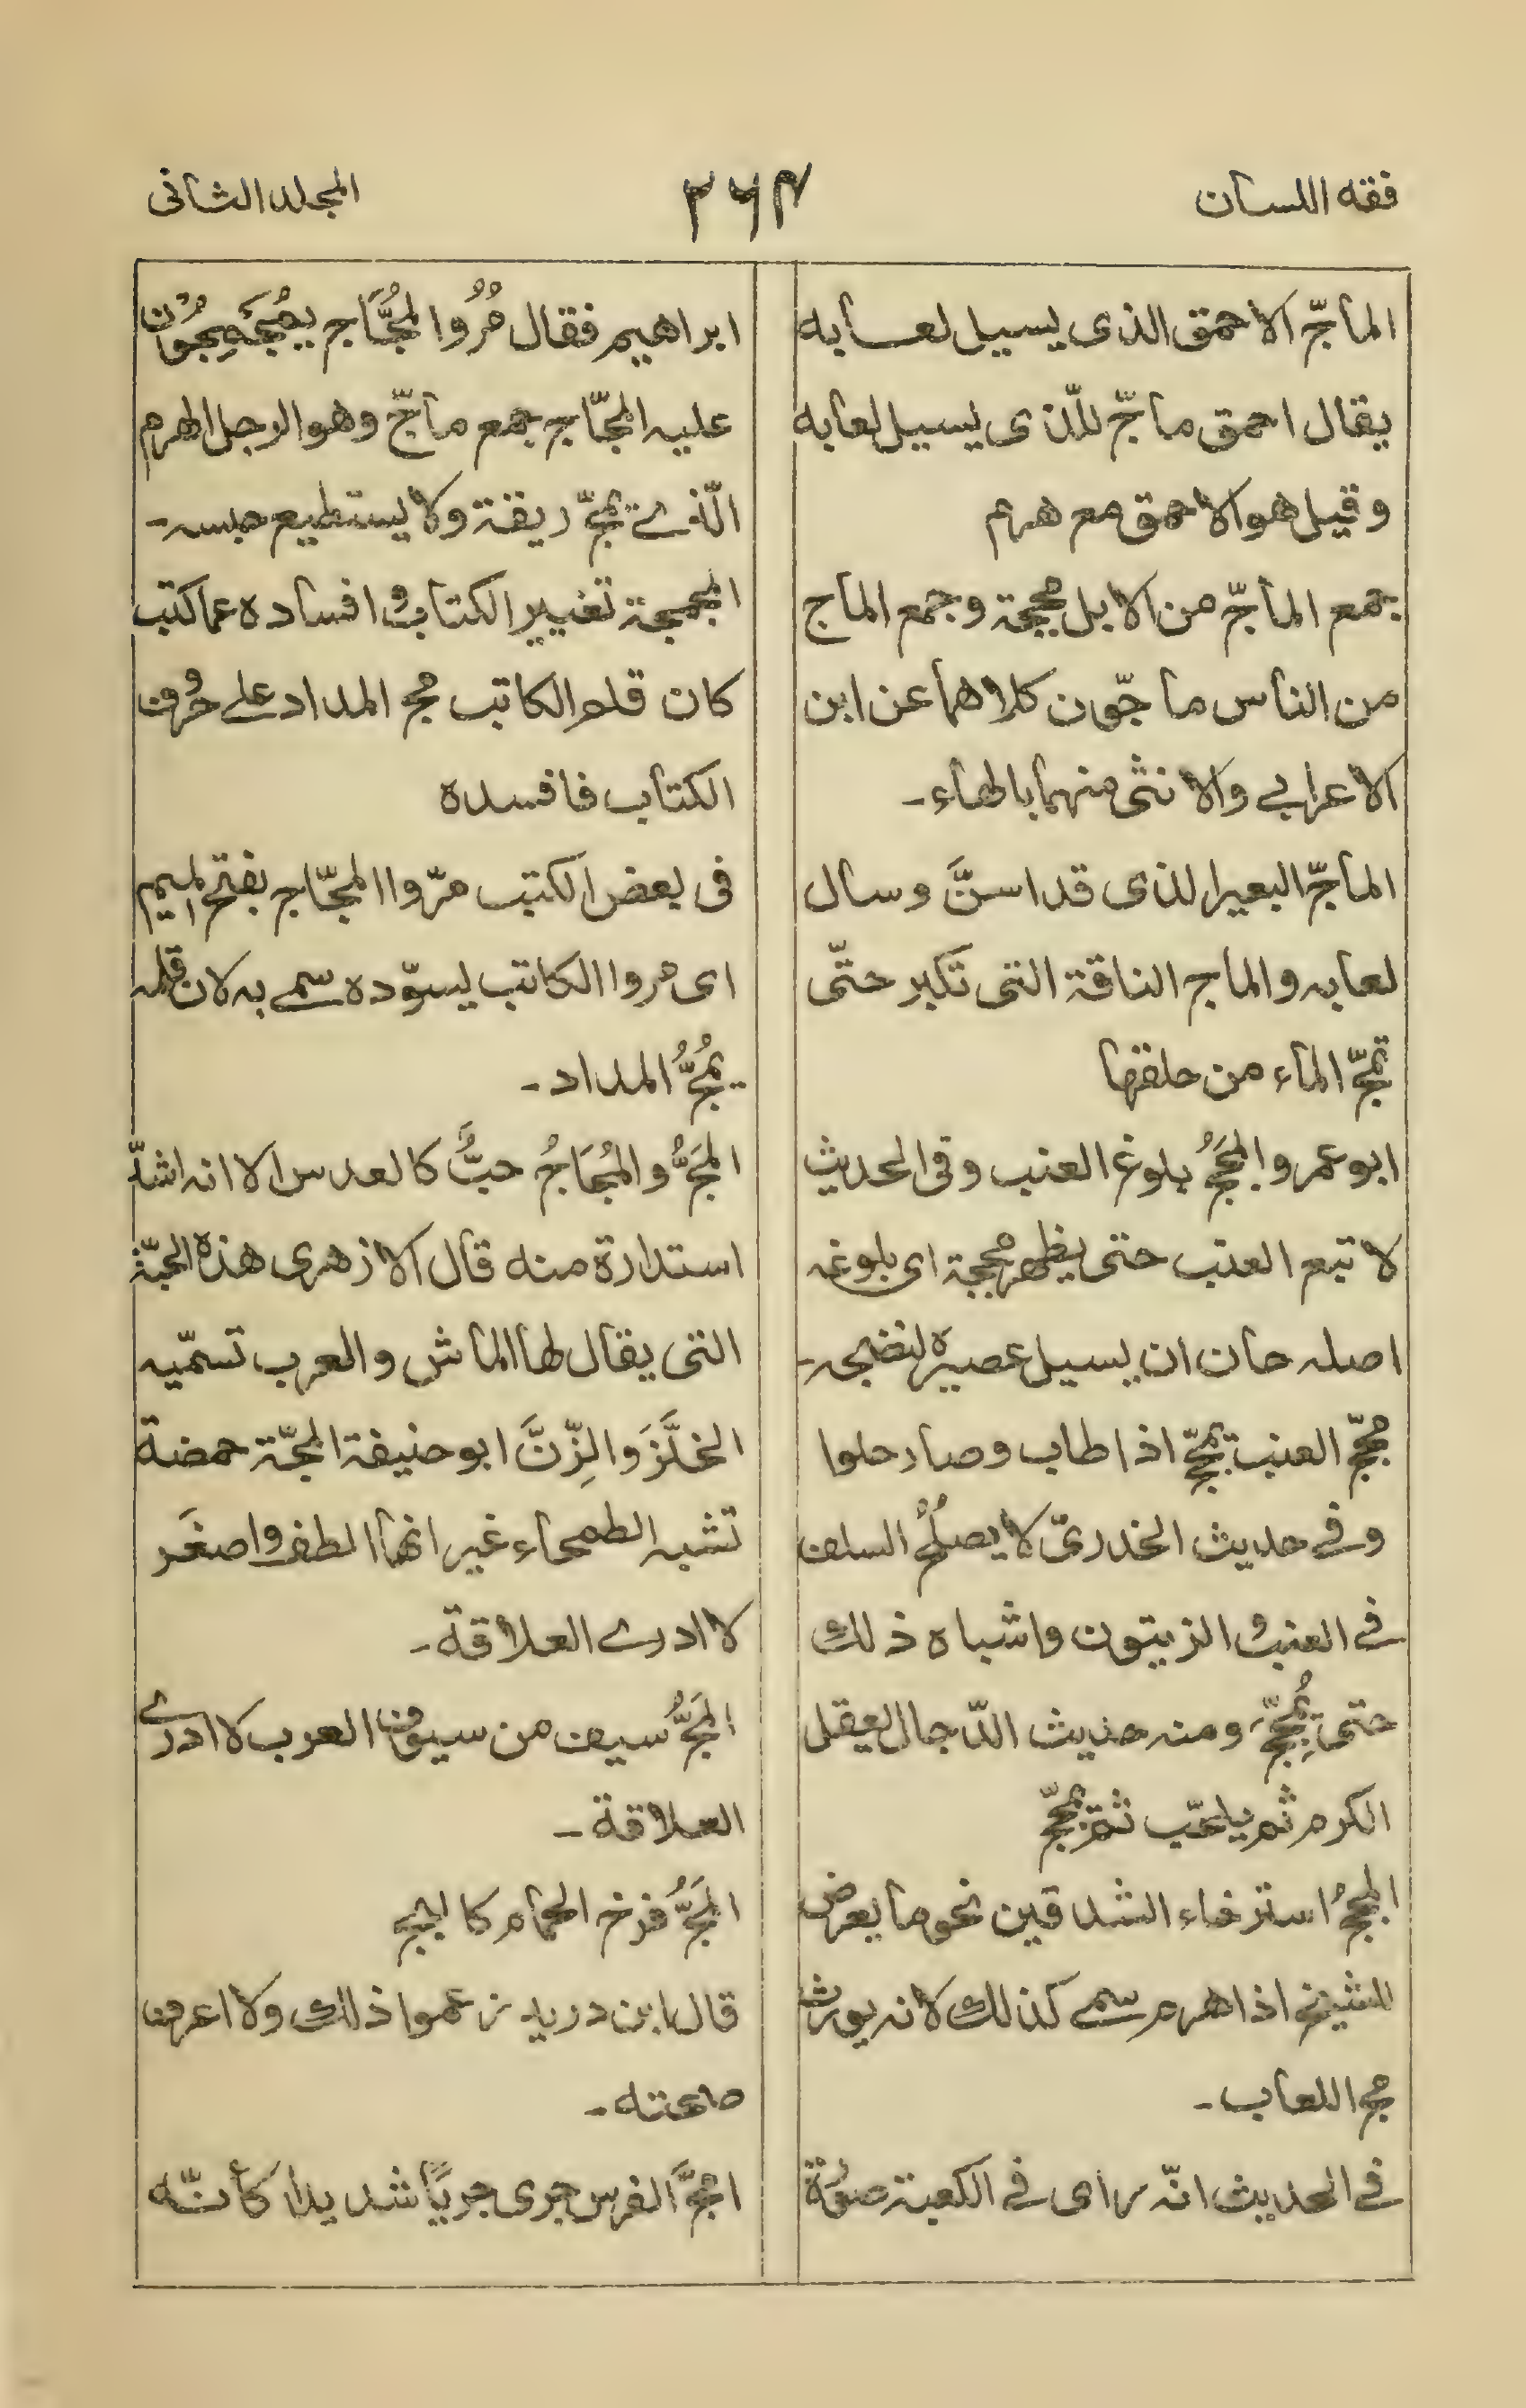 فقه اللسان
۳۶۴
المجلد الثانى
الماجّ الاحمق الذى يسيل لعابه
يقال احمق ماجّ للّذى يسيل لعابه
وقيل هو الاحمق مع هرم
جمع الماجّ من الابل مججة وجمع الماج
من الناس ماجّون كلاهما عن ابن
الاعرابى والانثى منهما بالهاء۔
الماجّ البعير الذى قد اسنَّ وسال
لعابه والماج الناقة التى تكبر حتّى
تمجّ الماء من حلقها
ابو عمرو المَجَجُ بلوغ العنب وفى الحديث
لا تبع العنب حتى يظهر مججه اى بلوغه
اصله حان ان يسيل عصيره لنضجه۔
مججّ العنب تمججّ اذا طاب وصار حلوا
وفى حديث الخدرىّ لا يصلُحُ السلف
فى العنب والزيتون واشباه ذلك
حتى يُمَجِّجَ ومنه حديث الدّجال العقل
الكرم ثم يلحّب ثم يمجّج
المججُ استرخاء الشدقين نحو ما يعرض
للشيخ اذا هرم سمى كذلك لانه يورث
مج اللعاب۔
فى الحديث انّه راى فى الكعبة صورة
ابراهيم فقال مُرُوا المُجَّاج يُمَجْمِجُون
عليه المجّاج جمع ماجّ وهو الرجل الهرم
الّذى يمجّ ريقة ولا يستطيع حبسه۔
المجمجة تغيير الكتاب وافساده عما كتب
كان قلم الكاتب مج المداد على حُروف
الكتاب فافسده
فى بعض الكتب مرّوا المجّاج بفتح الميم
اى مروا الكاتب ليسوّده سمى به لان قلمه
يمُجُّ المداد۔
المَجُّ والمُجَاجُ حبٌّ كالعدس الا انه اشدّ
استدارة منه قال الازهرى هذه الحبّة
التى يقال لها الماش والعرب تسمّيه
الخلَّرَ والزِّنَّ ابو حنيفة المجّة حمضة
تشبه الطحماء غير انها الطف واصغَر
لا ادرى العلاقة۔
المَجُّ سيف من سيوف العرب لا ادرى
العلاقة۔
المَجُّ فرخ الحمام كالبج
قال ابن دريد زعموا ذلك ولا اعرف
صحته۔
امجَّ الفرس جرى جريًا شديدا كأنّه